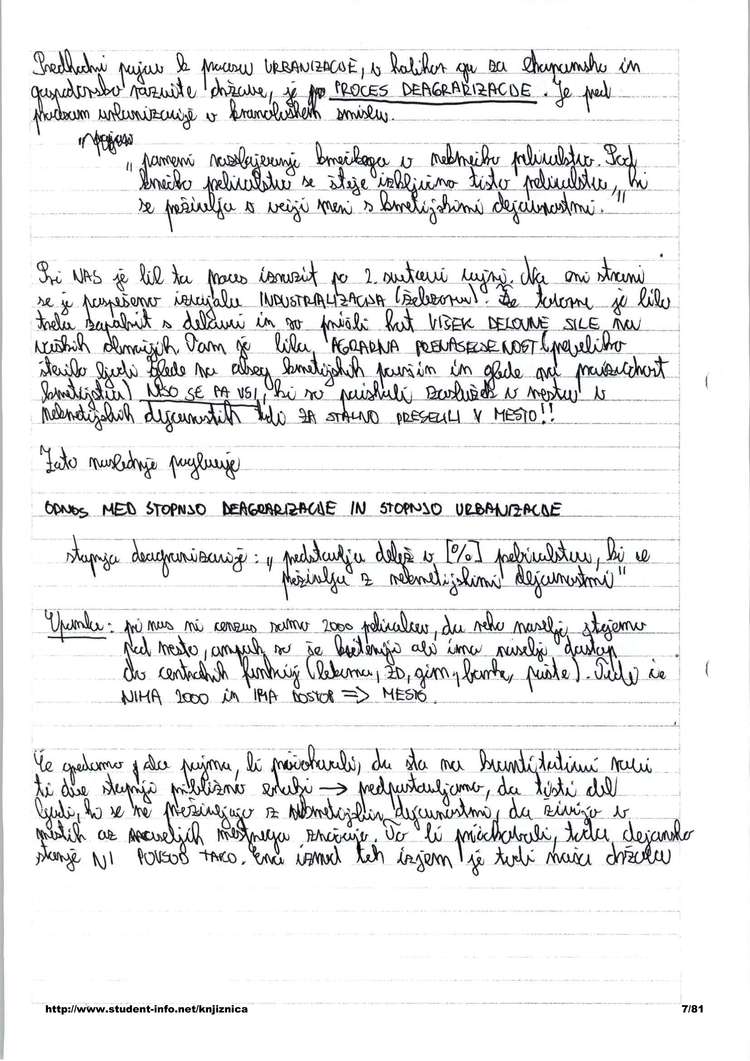 Predhodni pojav k procesu URBANIZACIJE, v kolikor gre za ekonomsko in
gospodarsko razvite države, je PROCES DEAGRARIZACIJE. Je pred
procesom urbanizacije v kronološkem smislu.
pojav
"pomeni razslojevanje kmečkega v nekmečko prebivalstvo. Pod
kmečko prebivalstvo se šteje izključno tisto prebivalstvo, ki
se preživlja v večji meri s kmetijskimi dejavnostmi."
Pri NAS je bil ta proces izrazit po 2. svetovni vojni. Na eni strani
se je pospešeno izvajala INDUSTRIALIZACIJA (železarne). Že takrat je bilo
treba zapolnit s delavci in so prišli kot VIŠEK DELOVNE SILE na
ruških območjih. Tam je bila "AGRARNA PRENASELJENOST" (preveliko
število ljudi glede na obseg kmetijskih površin in glede na
kmetijstva) NISO SE PA VSI, ki so poiskali zaslužek v mestu v
nekmetijskih dejavnostih tudi ZA STALNO PRESELILI V MESTO!!
Zato naslednje poglavje
ODNOS MED STOPNJO DEAGRARIZACIJE IN STOPNJO URBANIZACIJE
stopnja deagrarizacije: "predstavlja delež v [%] prebivalstva, ki se
preživlja z nekmetijskimi dejavnostmi"
Opomba: pri nas ni cenzus samo 2000 prebivalcev, da neko naselje štejemo
pod mesto, ampak so še kriteriji ali ima naselje dostop
do centralnih funkcij (lekarna, ZD, gimn, banka, pošte). Tudi če
NIMA 2000 in IMA DOSTOP => MESTO.
Če gledamo oba pojma, bi pričakovali, da sta na kvantitativni ravni
ti dve stopnji približno enaki → predpostavljamo, da tisti del
ljudi, ko se ne preživljajo z nekmetijskim dejavnostmi, da živijo v
mestih oz naseljih mestnega značaja. To bi pričakovali, toda dejansko
stanje NI POVSOD TAKO. Ena izmed teh izjem je tudi naša država
http://www.student-info.net/knjiznica
7/81